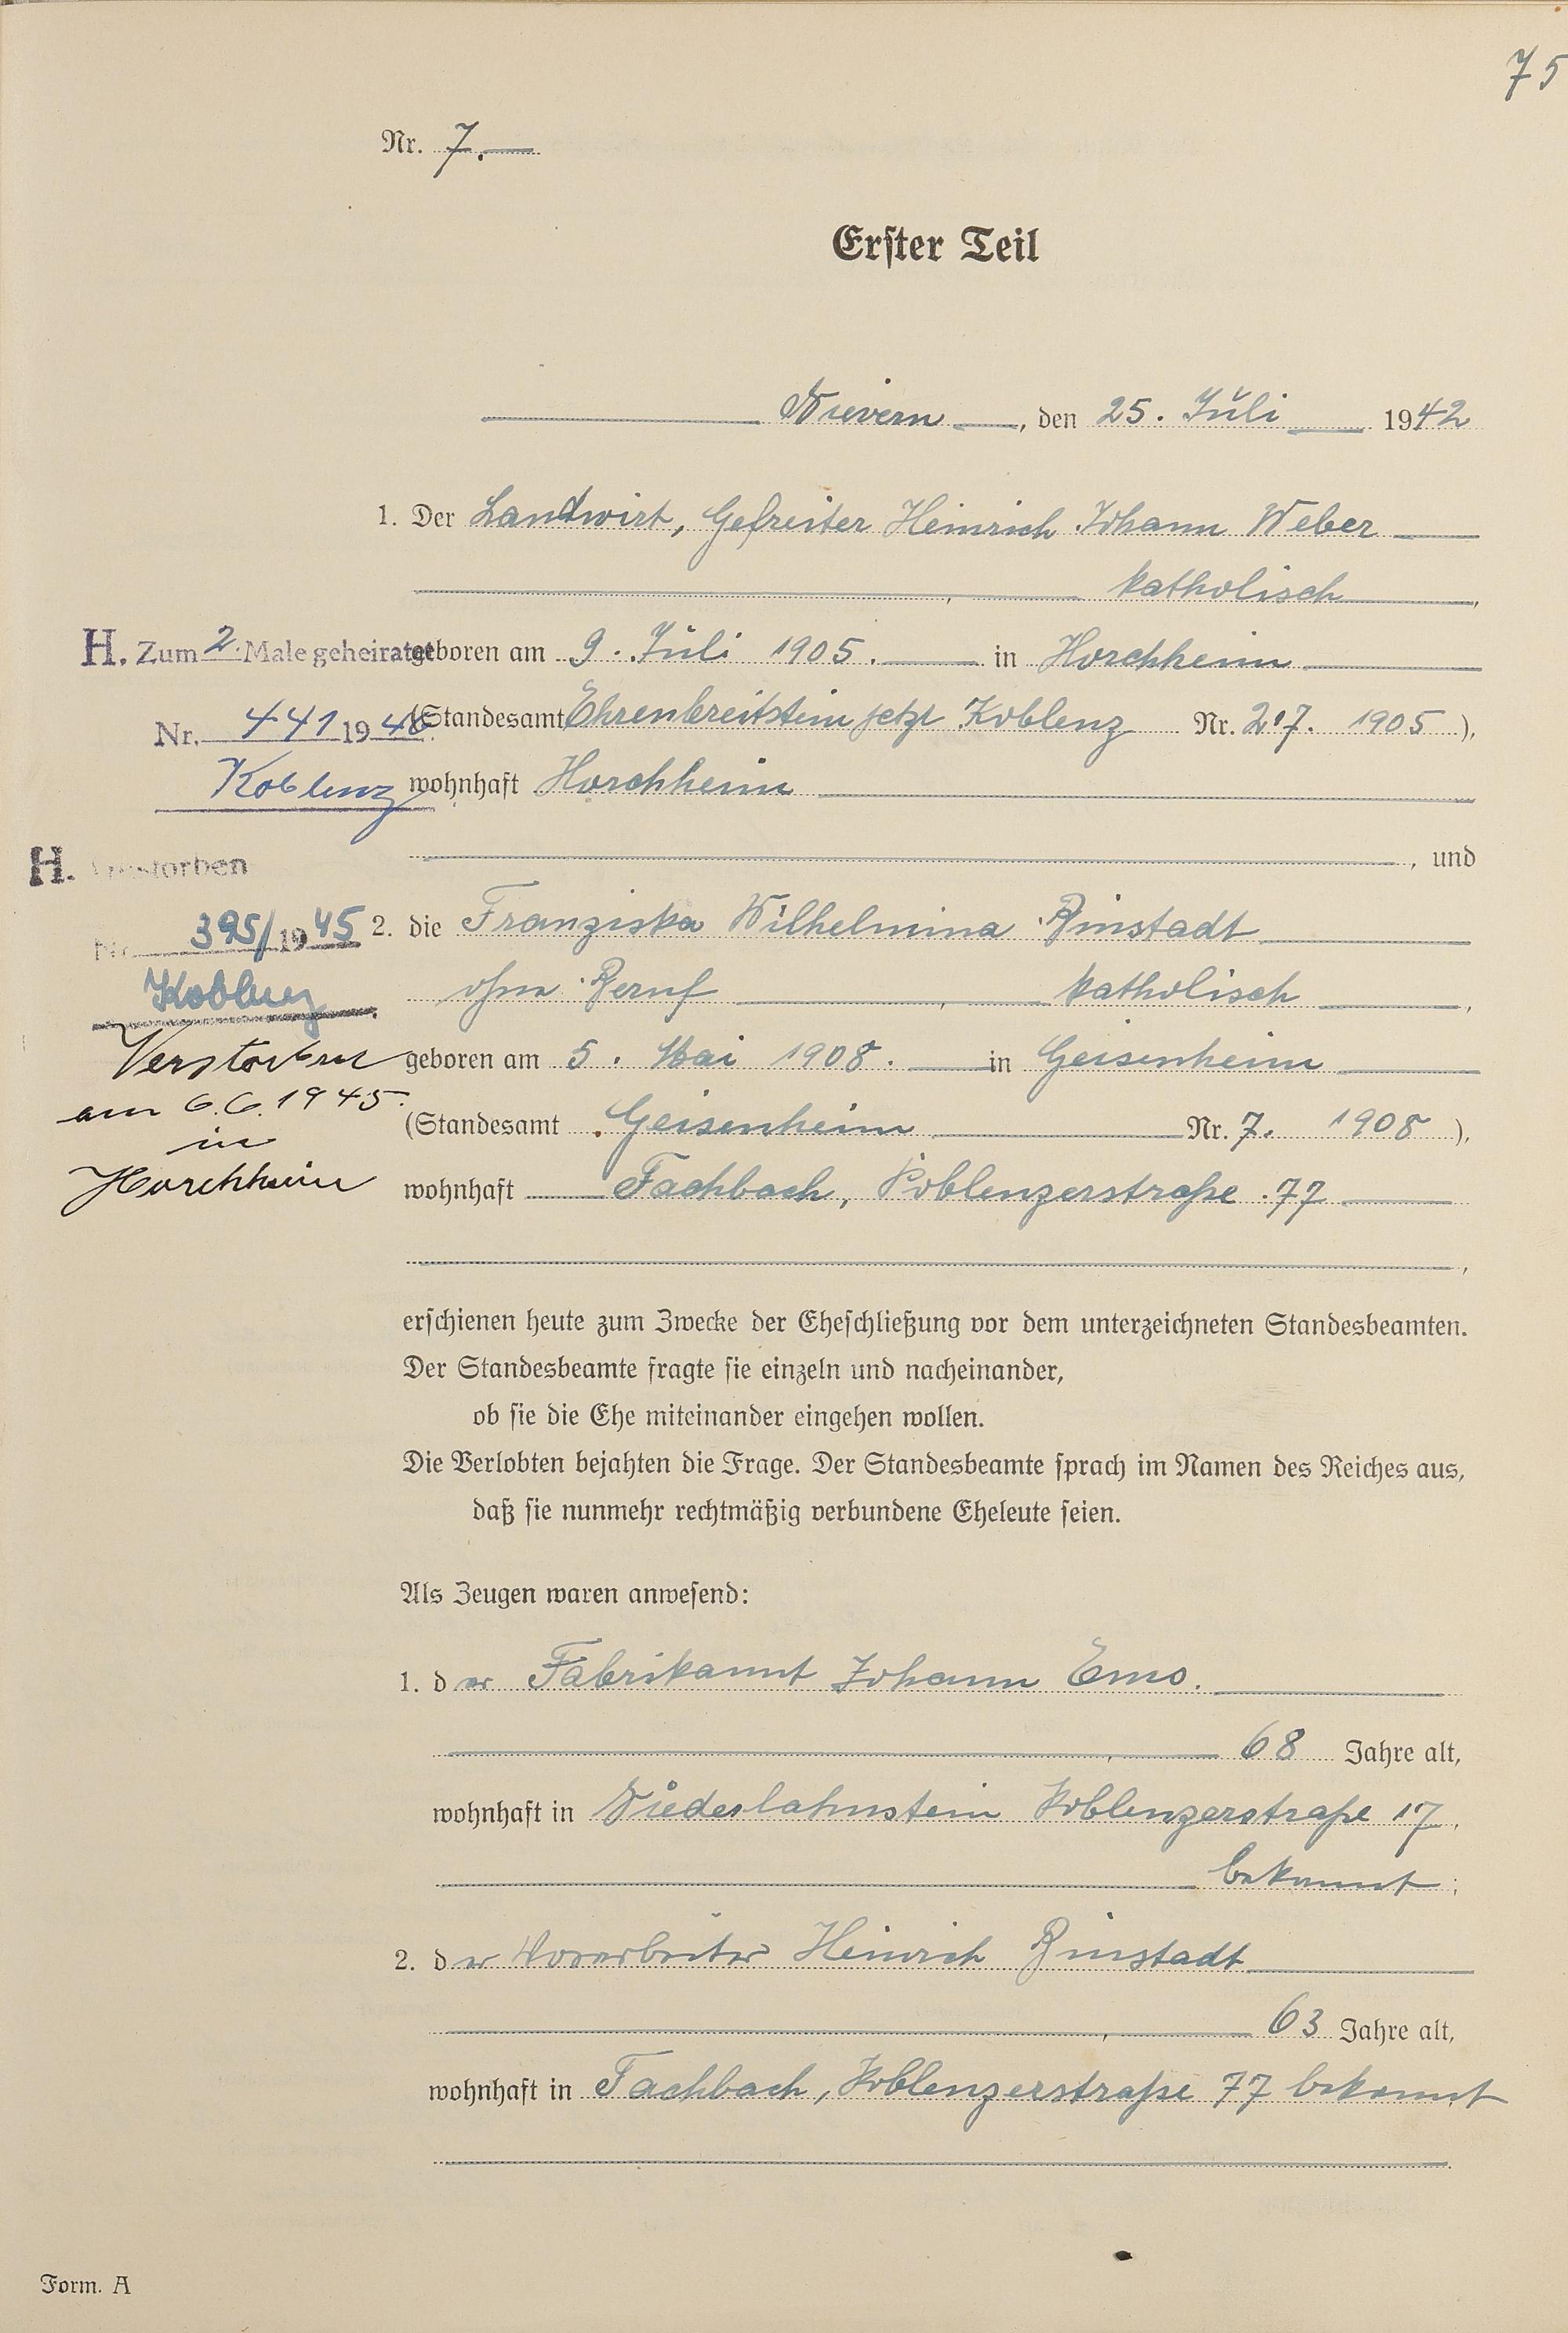 75
Nr. 7.
Erster Teil
Nievern, den 25. Juli 1942
1. Der Landwirt, Gefreiter Heinrich Johann Weber
, katholisch,
geboren am 9. Juli 1905. in Horchheim
(Standesamt Ehrenbreitstein jetzt Koblenz Nr. 27. 1905),
wohnhaft Horchheim
, und
2. die Franziska Wilhelmina
ohne Beruf, katholisch,
geboren am 5. Mai 1908. in Geisenheim
(Standesamt Geisenheim Nr. 7. 1908),
wohnhaft Fachbach, Koblenzerstraße 77
,
erschienen heute zum Zwecke der Eheschließung vor dem unterzeichneten Standesbeamten.
Der Standesbeamte fragte sie einzeln und nacheinander,
ob sie die Ehe miteinander eingehen wollen.
Die Verlobten bejahten die Frage. Der Standesbeamte sprach im Namen des Reiches aus,
daß sie nunmehr rechtmäßig verbundene Eheleute seien.
Als Zeugen waren anwesend:
1. der Fabrikannt Johann
, 68 Jahre alt,
wohnhaft in Niederlahnstein Koblenzerstraße 17,
bekannt;
2. der Vorarbeiter Heinrich
, 63 Jahre alt,
wohnhaft in Fachbach, Koblenzerstraße 77 bekannt
.
H. Zum 2. Male geheiratet
Nr. 441 1946.
Koblenz
H. Verstorben
Nr. 395/1945
Koblenz.
Verstorben
am 6.6.1945.
in
Horchheim
Form. A